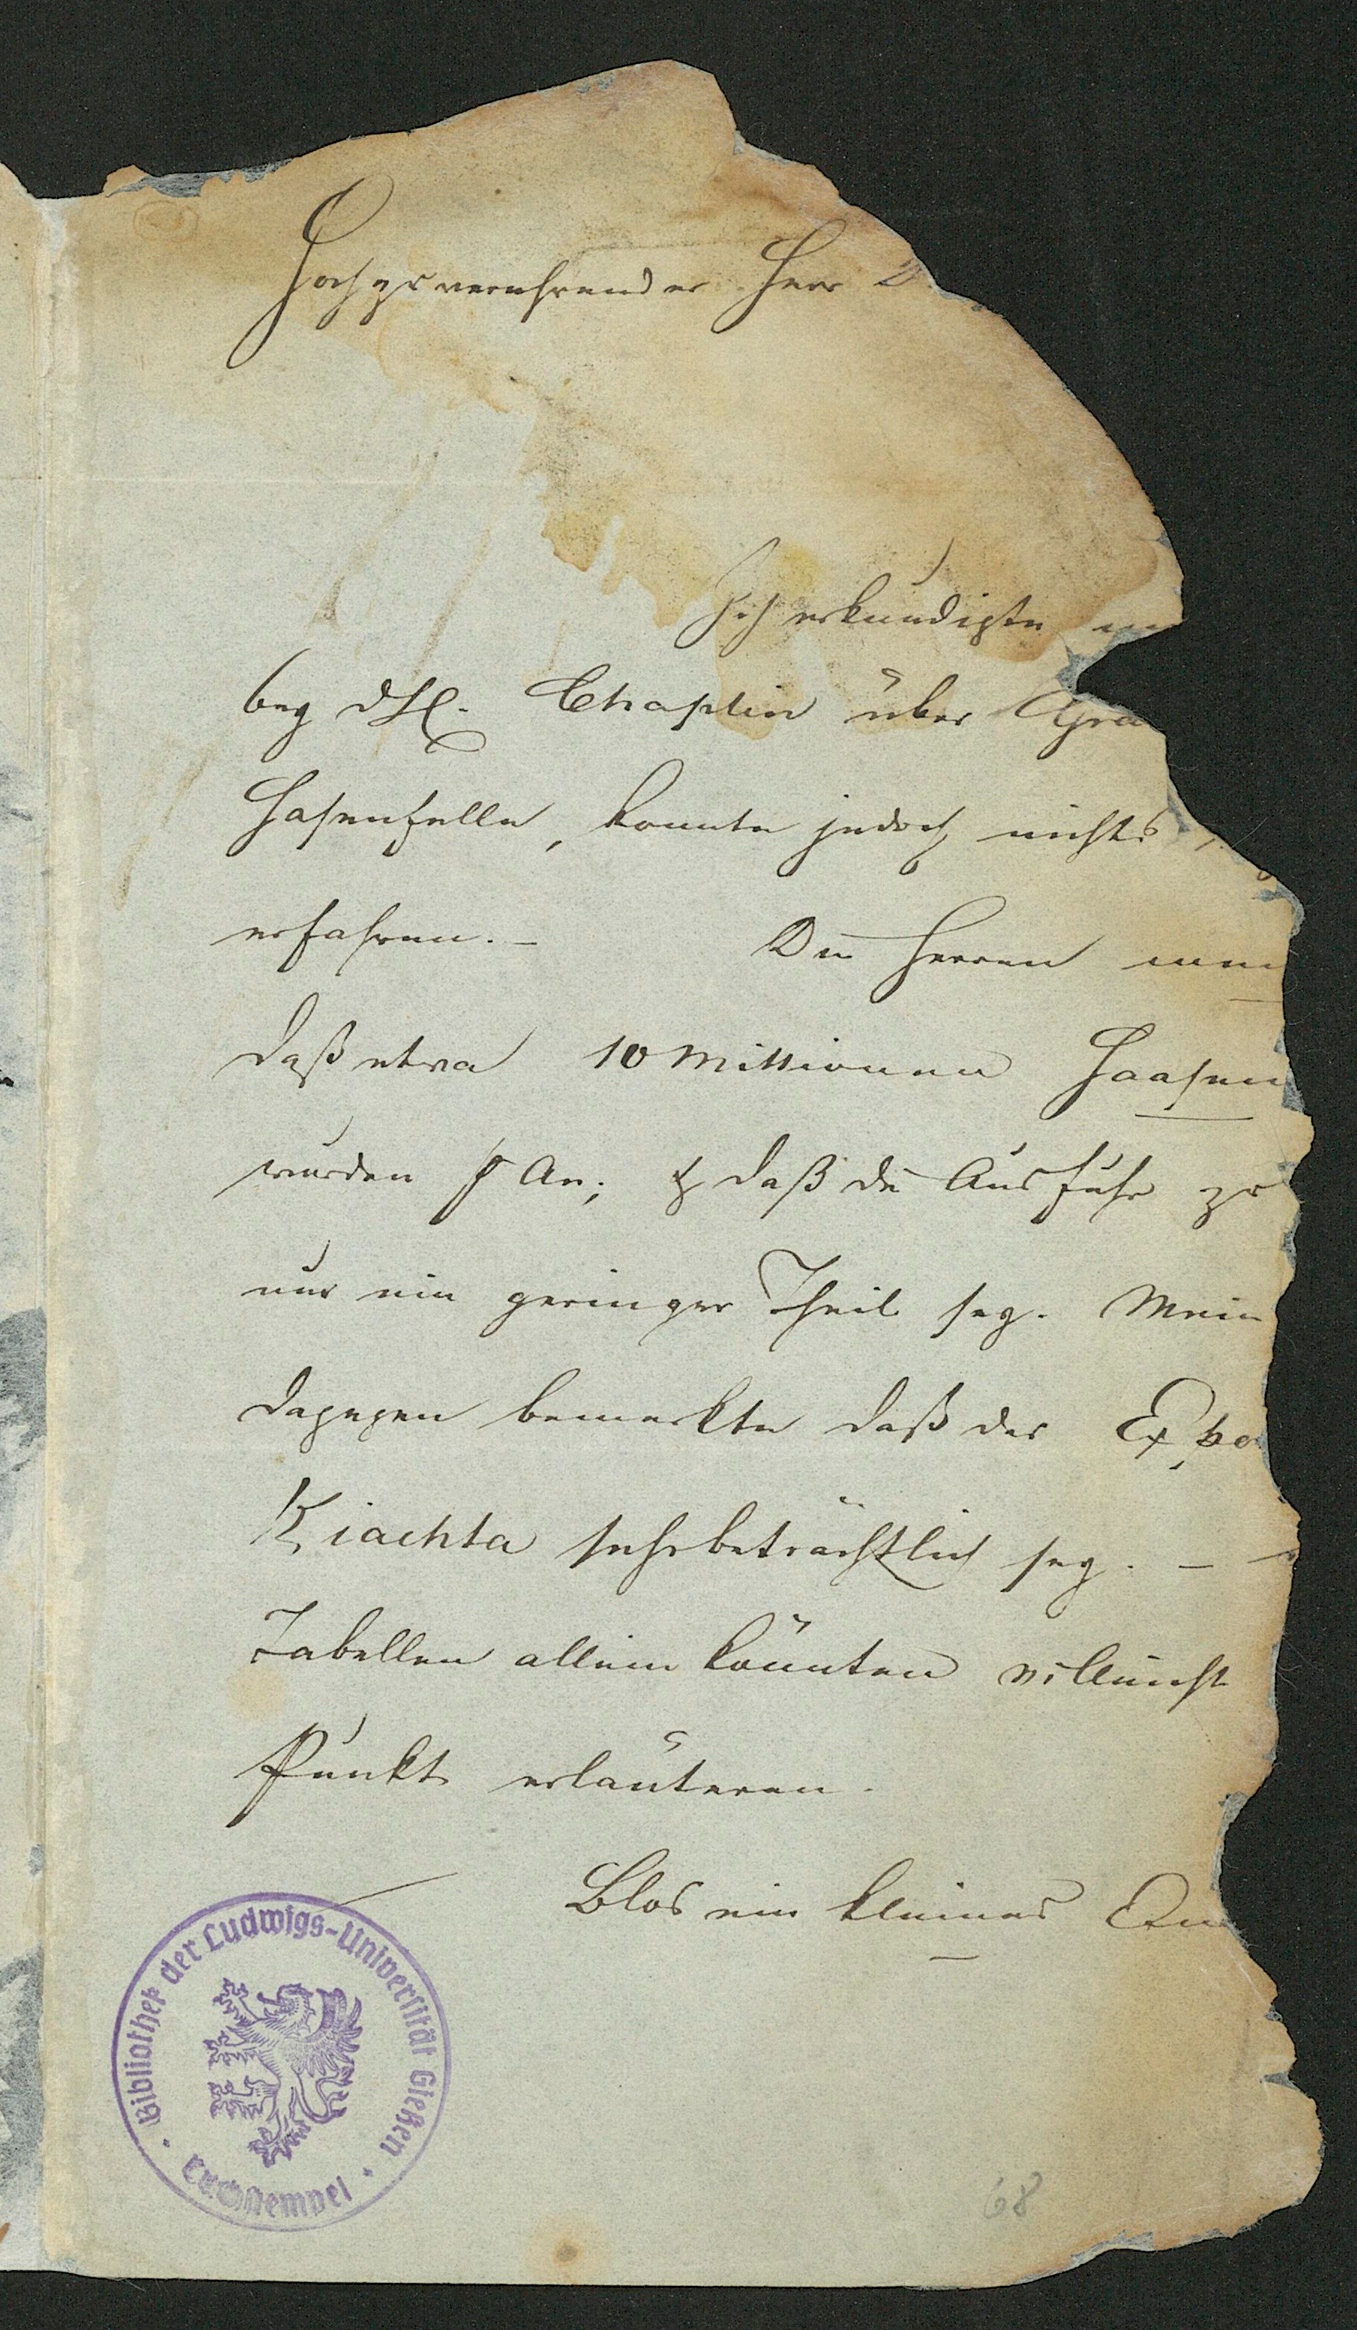 Hochzuverehrender Herr
Ich erkundigte
bey d H. Chaplin über Gra
Hasenfelle, konnte jedoch nichts
erfahren. – Die Herren
daß etwa 10 Millionen Haasen
wurden p An; & daß die Ausfuhr zu
nur ein geringer Theil sey. Mein
dagegen bemerkte daß der Expo
Kiachta sehr beträchtlich sey. –
Tabellen allein könnten villeicht
Punkt erläuteren.
Blos ein kleines Qu
Bibliothek der Ludwigs-Universität Gießen
68